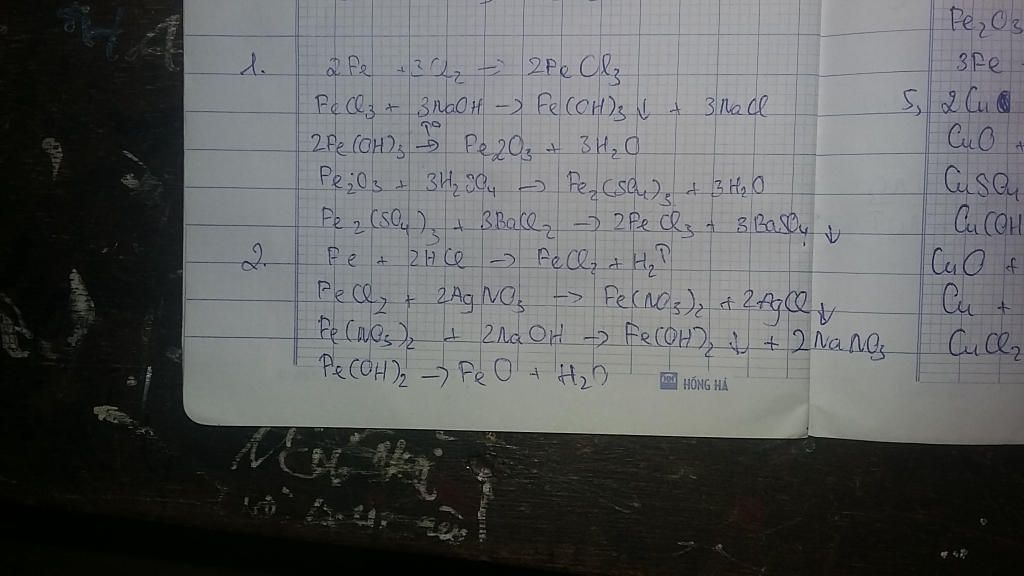 1. 2Fe + 3Cl2 → 2FeCl3
FeCl3 + 3NaOH → Fe(OH)3 ↓ + 3NaCl
2Fe(OH)3 →t° Fe2O3 + 3H2O
Fe2O3 + 3H2SO4 → Fe2(SO4)3 + 3H2O
Fe2(SO4)3 + 3BaCl2 → 2FeCl3 + 3BaSO4 ↓
2. Fe + 2HCl → FeCl2 + H2↑
FeCl2 + 2AgNO3 → Fe(NO3)2 + 2AgCl ↓
Fe(NO3)2 + 2NaOH → Fe(OH)2 ↓ + 2NaNO3
Fe(OH)2 → FeO + H2O
HỒNG HÀ
Fe2O3
3Fe
5, 2Cu
CuO +
CuSO4
Cu(OH
CuO +
Cu +
CuCl2